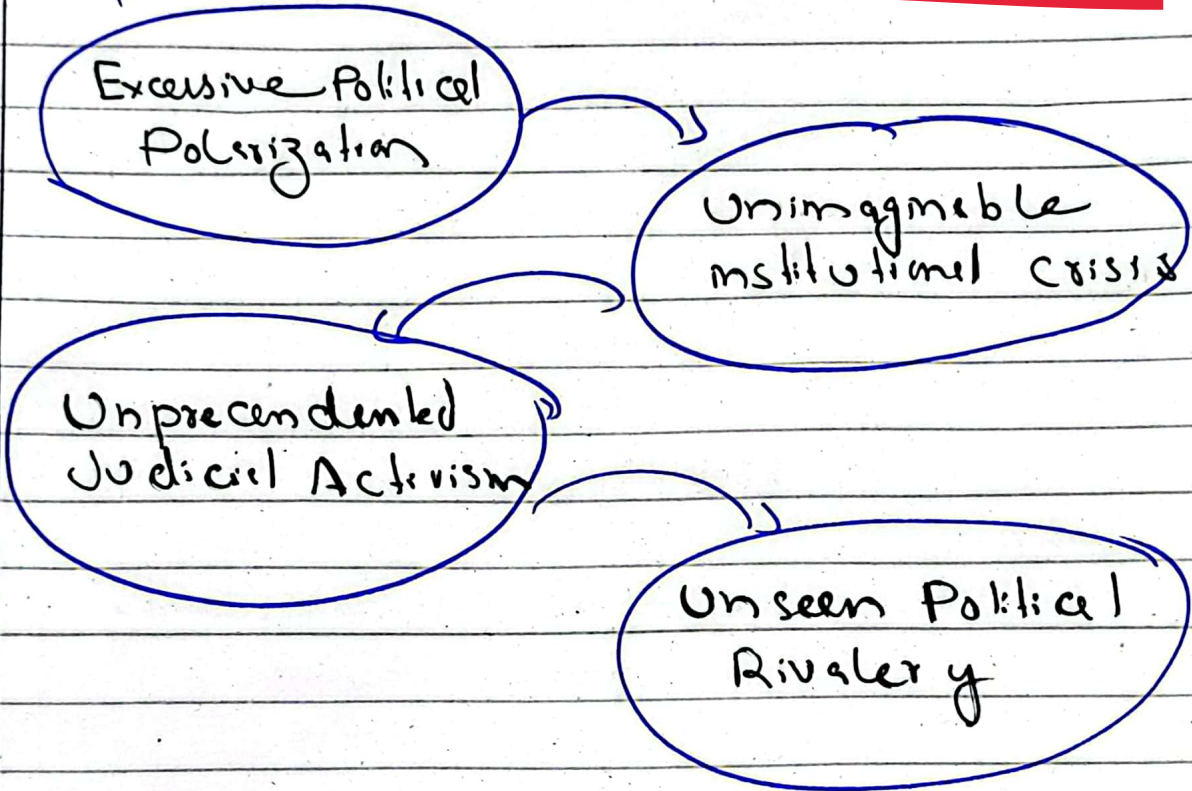 Excessive Political
Polarization
Unimaginable
institutional crisis
Unprecendented
Judicial Activism
Unseen Political
Rivalery